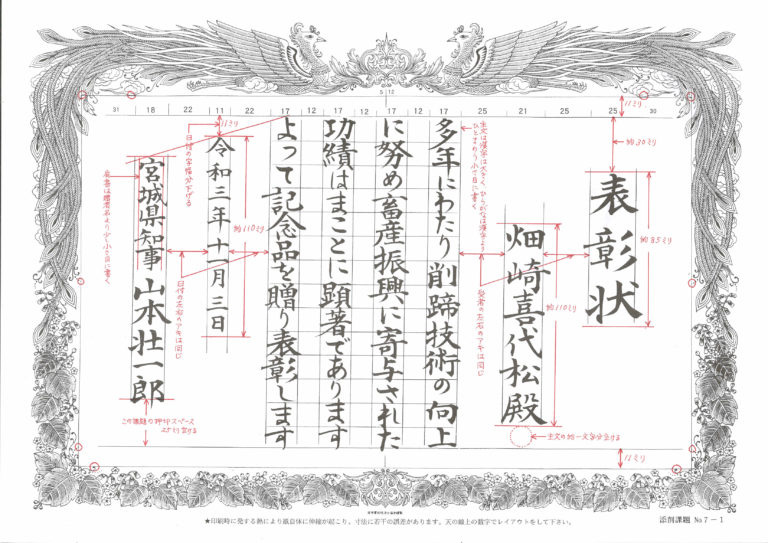 表彰状
畑崎喜代松殿
多年にわたり削蹄技術の向上
に努め畜産振興に寄与された
功績はまことに顕著であります
よって記念品を贈り表彰します
令和三年十一月三日
宮城県知事 山本壮一郎
31 18 22 11 22 17 12 17 12 17 12 17 25 21 25 25 30
5 12
11ミリ
約30ミリ
約85ミリ
約110ミリ
受者の左右のアキは同じ
主文の約一文字分空ける
主文は漢字は大きく、ひらがなは漢字より
ひとまわり小さ目に書く
11ミリ
11ミリ
約110ミリ
日付の字幅分下げる
日付の左右のアキは同じ
肩書は贈者名より少し小さ目に書く
この課題の押印スペース
25ミリ空ける
★印刷時に発する熱により紙自体に伸縮が起こり、寸法に若干の誤差があります。天の線上の数字でレイアウトをして下さい。
添削課題 No7-1